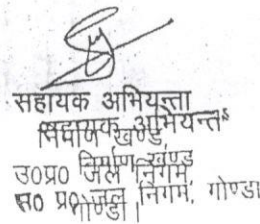 सहायक अभियन्ता
सहायक अभियन्ता
निर्माण खण्ड,
निर्माण खण्ड
उ०प्र० जल निगम,
उ० प्र० जल निगम, गोण्डा
गोण्डा।